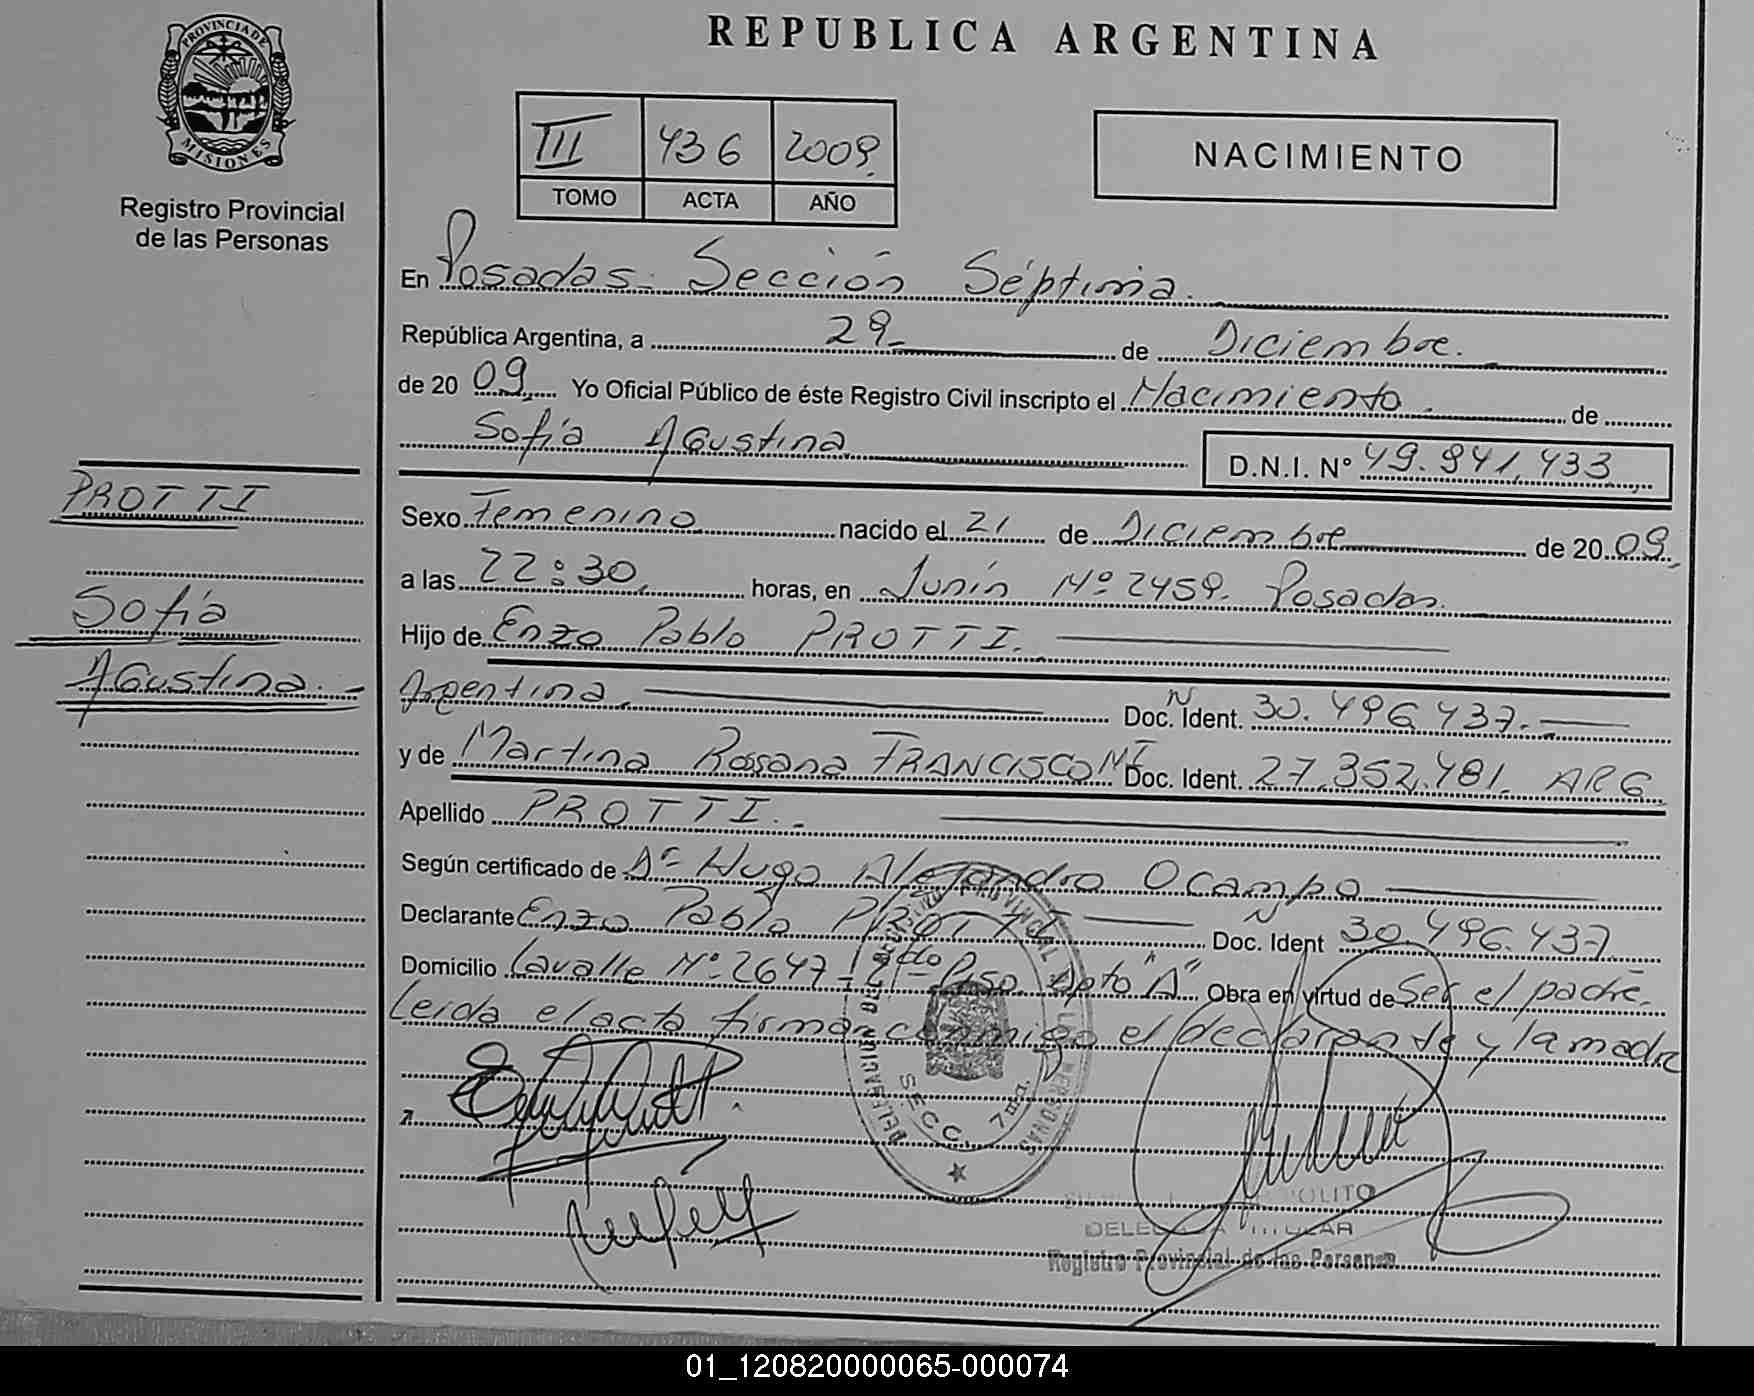 REPUBLICA ARGENTINA
PROVINCIA DE
MISIONES
Registro Provincial
de las Personas
III 436 2009.
TOMO ACTA AÑO
NACIMIENTO
En Posadas. Sección Séptima.
República Argentina, a 29 de Diciembre.
de 20 09 Yo Oficial Público de éste Registro Civil inscripto el Nacimiento. de
Sofía Agustina D.N.I. Nº 49.941.433
PROTTI
Sofía
Agustina.
Sexo Femenino nacido el 21 de Diciembre de 20 09
a las 22:30 horas, en Junín Nº 2459. Posadas.
Hijo de Enzo Pablo PROTTI.
Argentina Doc. Ident. 30.496.437.
y de Martina Rossana FRANCISCO Doc. Ident. 27.352.481. ARG
Apellido PROTTI.
Según certificado de Dr Hugo Alejandro Ocampo
Declarante Enzo Pablo PROTTI Doc. Ident 30.496.437
Domicilio Lavalle Nº 2647 - 2do Piso Dpto "A" Obra en virtud de Ser el padre.
Leida el acta firman conmigo el declarante y la madre
DELEGACION DEL REGISTRO PROVINCIAL DE LAS PERSONAS
SECC. 7ma.
OLITO
TITULAR
Registro Provincial de las Personas
01_120820000065-000074